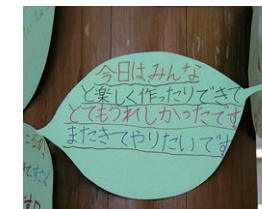 今日は、みんな
と楽しく作ったりできて
とてもうれしかったです
またきてやりたいです